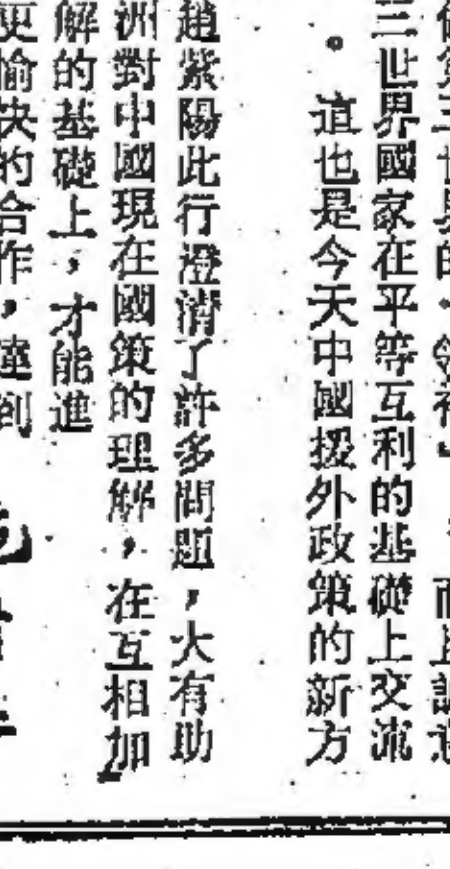 三世界國家在平等互利的基礎上交流
。這也是今天中國援外政策的新方
趙紫陽此行澄清了許多問題，大有助
洲對中國現在國策的理解，在互相加
解的基礎上，才能進
更愉快的合作，達到